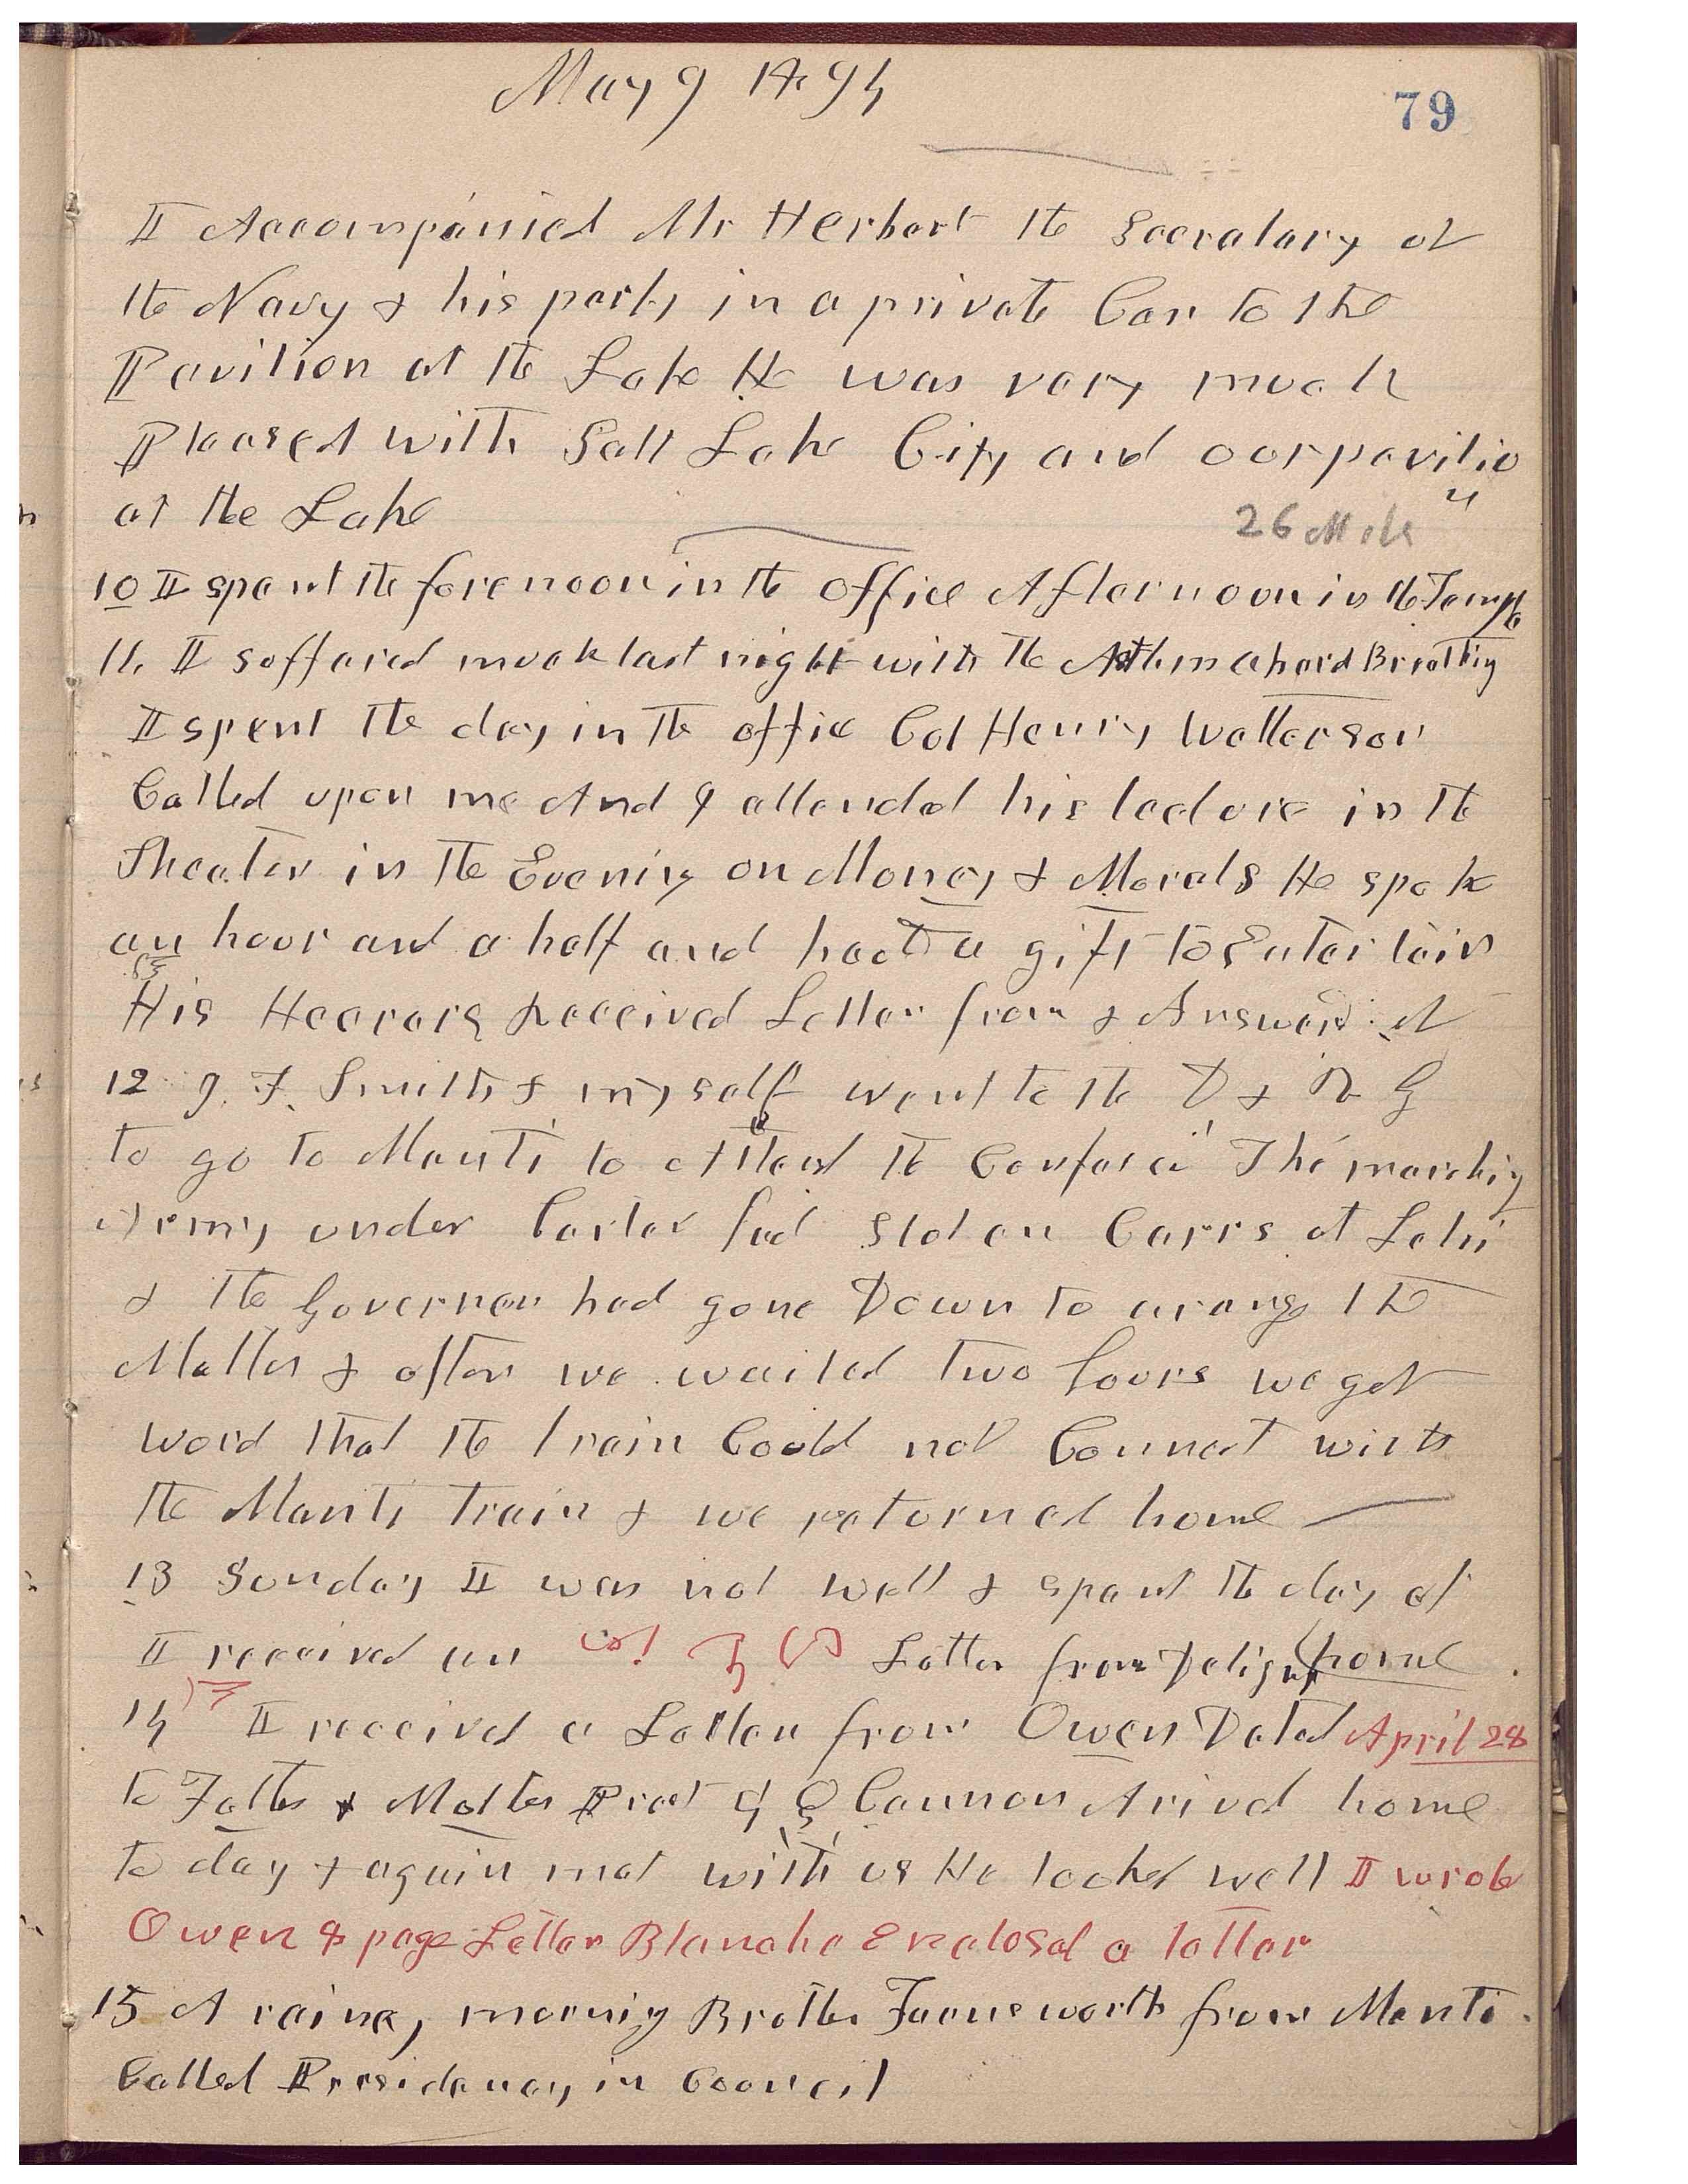 May 9 1894
79
I Accompanied Mr Herbert the Secratary of
the Navy & his party in a private Car to the
Pavilion at the Lake He was very much
Pleased with Salt Lake City and our pavilion
at the Lake
26 Mils
10 I spent the forenoon in the office Afternoon in the Temple
11. I suffered much last night with the Asthma hard Breathing
I spent the day in the office Col Henry Watterson
Called upon me And I attended his lecture in the
Theater in the Evening on Money & Morals He spoke
an hour and a half and had a gift to Entertain
His Hearors Received Letter from & Answered it
12 J. F. Smith & myself went to the D & R G
to go to Manti to attend the Conferce The marching
Army under Carter had stolen Carrs at Lehi
& the Governor had gone Down to arange the
Matter & after we waited two hours we got
word that the train Could not Connect with
the Manti train & we returned home
13 Sunday I was not well & spent the day at
I received an Letter from Delight home
14 I received a Letter from Owen Dated April 28
to Father & Mother Presd G Q Cannon Arived home
to day & again met with us He looked well I wrote
Owen 4 page Letter Blanche Enclosed a letter
15 A rainey morning Brother Farnsworth from Manti
Called Presidency in Council